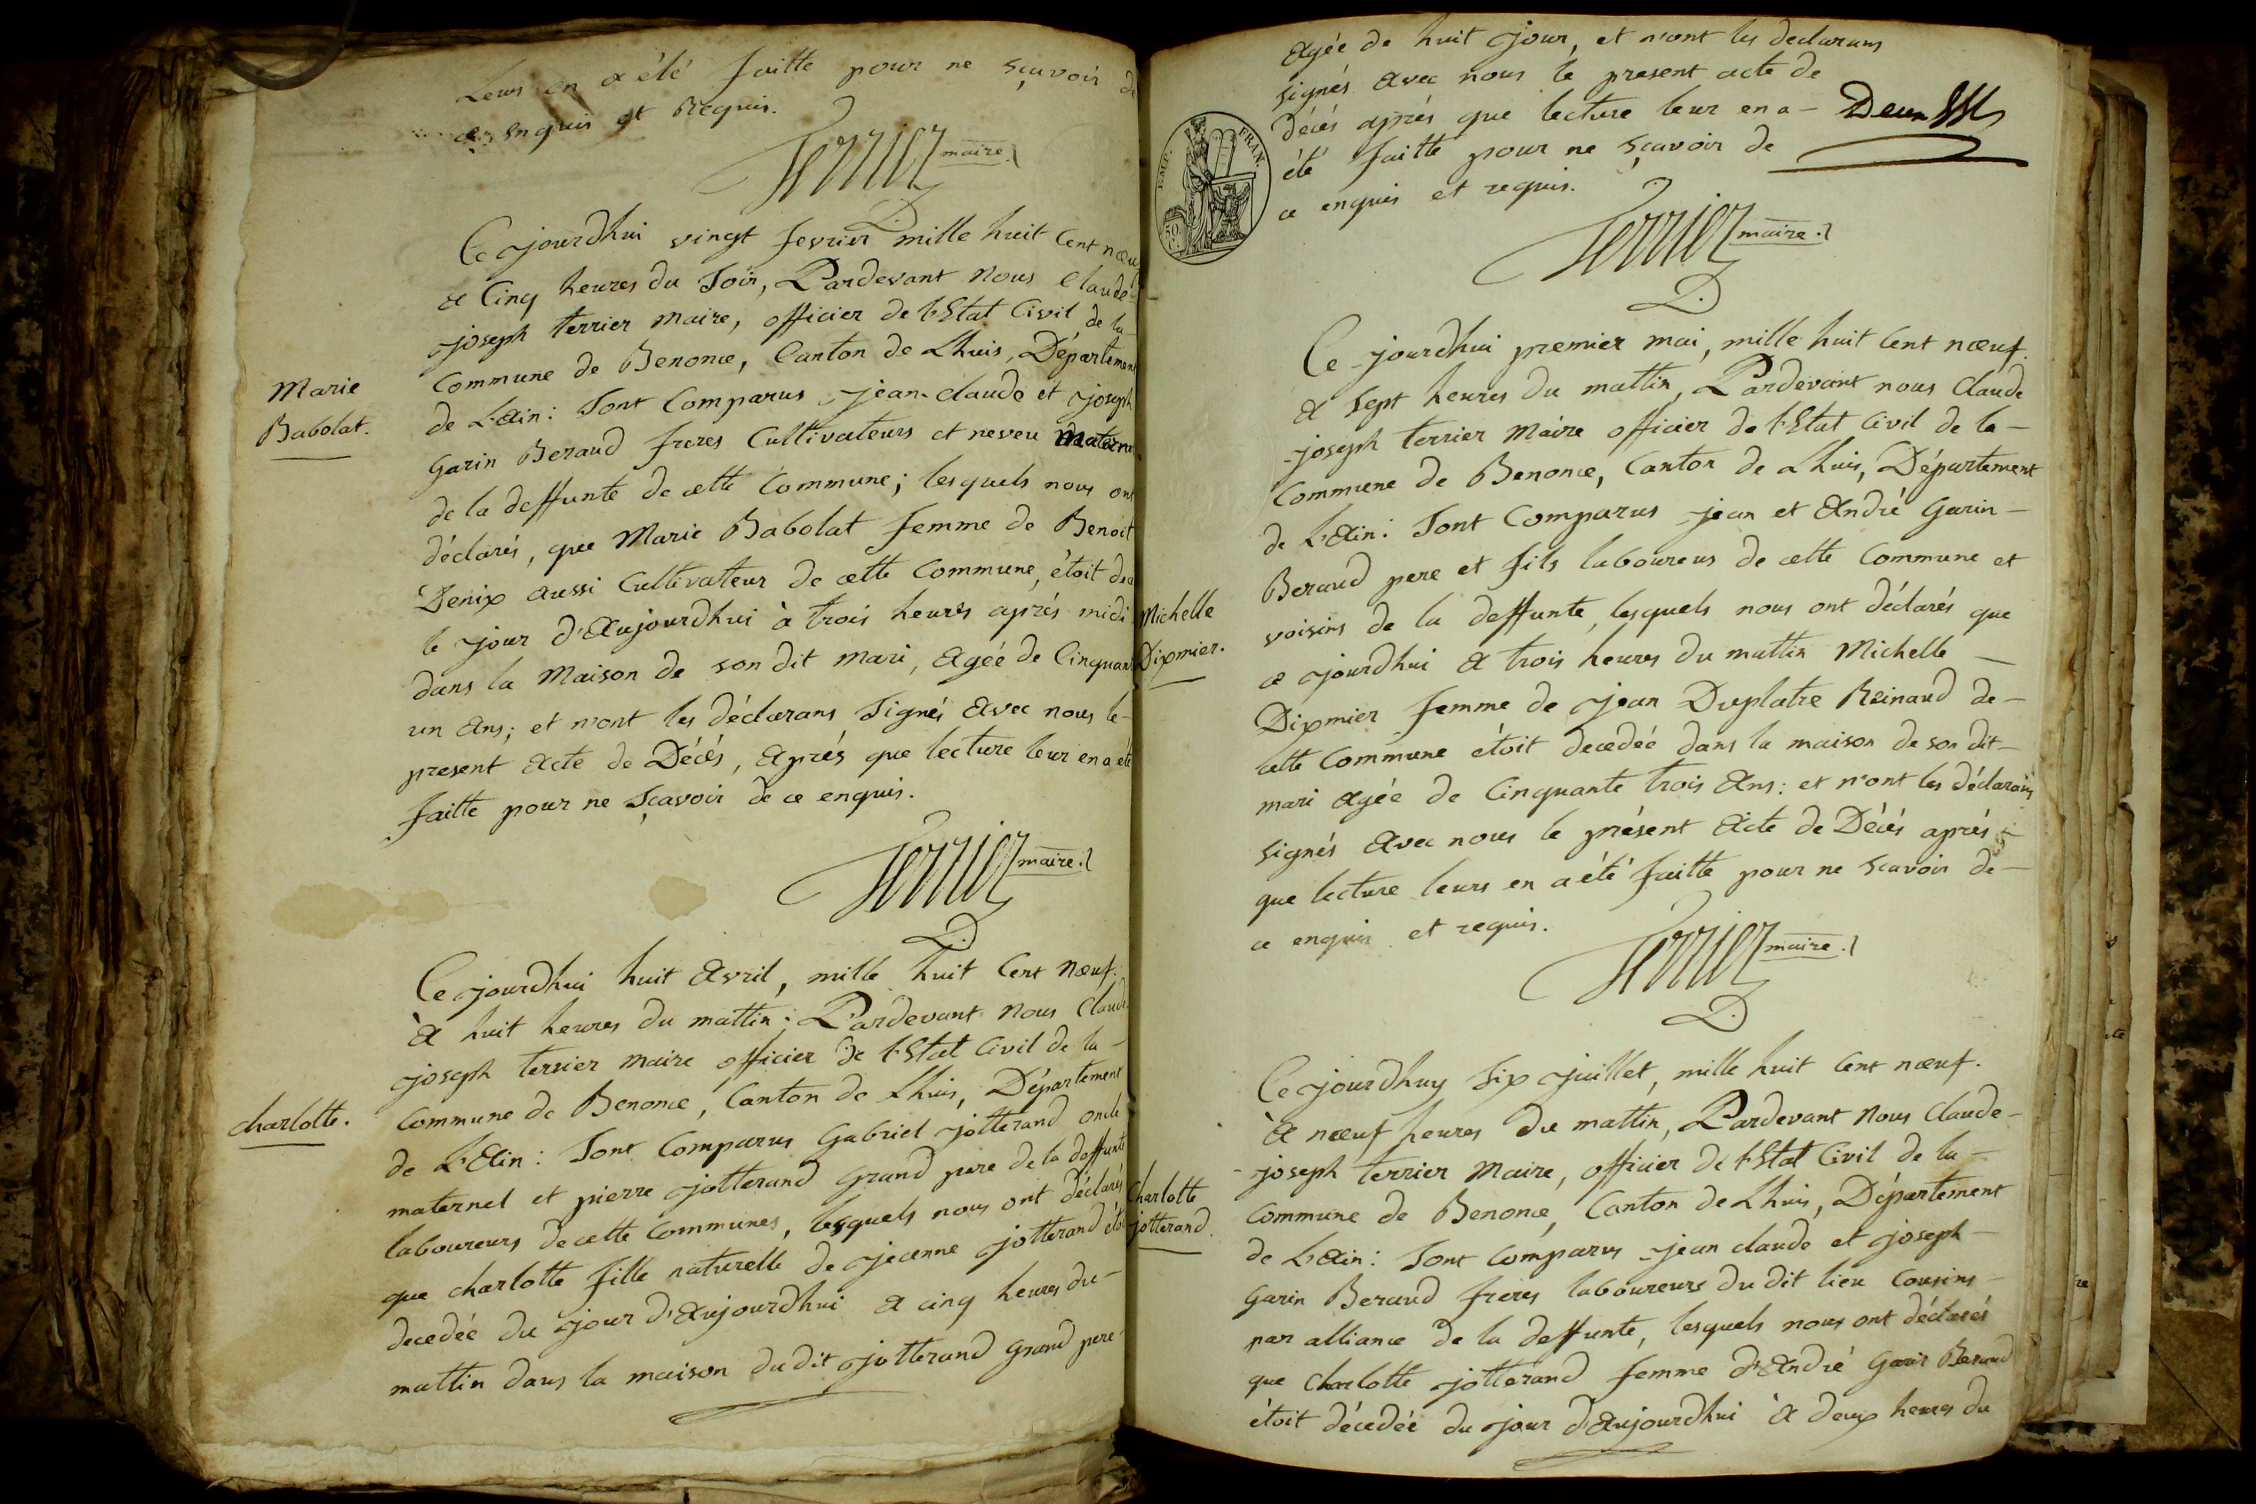 Leurs en a été faitte pour ne sçavoir de
ce enquis et Requis.
Terrier maire.
Ce jourdhui vingt fevrier mille huit Cent nœuf
a Cinq heures du Soir, Pardevant Nous Claude-
joseph terrier Maire, officier de l'Etat Civil de la
Commune de Benonce, Canton de Lhuis, Département
Marie
Babolat.
de L'Ain: Sont Comparus jean-claude et joseph
Garin Beraud freres Cultivateurs et neveu maternel
de la deffunte de cette Commune; lesquels nous ont
déclarés, que Marie Babolat femme de Benoit
Denix aussi Cultivateur de cette Commune, étoit
le jour d'Aujourdhui à trois heures après midi
dans la Maison de son dit mari, Agée de Cinquante
un Ans; et n'ont les déclarans Signés Avec nous le-
present Acte de Décés, Aprés que lecture leur en a été
faitte pour ne Sçavoir de ce enquis.
Terrier maire.
Ce jourdhui huit Avril, mille huit Cent nœuf.
À huit heures du mattin; Pardevant Nous Claude
joseph terrier maire officier de l'Etat Civil de la-
charlotte.
Commune de Benonce, Canton de Lhuis, Département
de L'Ain: Sont Comparus Gabriel jotterand oncle
maternel et pierre jotterand Grand pere de la deffunte
laboureurs de cette Communes, lesquels nous ont déclarés
que charlotte fille naturelle de jeanne jotterand étoit
decedée du jour d'Aujourdhui a cinq heures du-
mattin dans la maison du dit jotterand Grand pere-
EMP. FRAN.
50 C.
Agée de huit jour, et n'ont les declarans
signés Avec nous le present acte de
décés aprés que lecture leur en a-
été faitte pour ne sçavoir de
ce enquis et requis.
Terrier maire.
Ce jourdhui premier mai, mille huit Cent nœuf.
a Sept heures du mattin, Pardevant nous Claude
joseph terrier Maire officier de l'Etat Civil de la-
Commune de Benonce, Canton de Lhuis, Département
de L'Ain: Sont Comparus jean et André Garin-
Beraud pere et fils laboureurs de cette Commune et
Michelle
Dixmier.
voisins de la deffunte, lesquels nous ont déclarés que
ce jourdhui A trois heures du mattin Michelle-
Dixmier femme de jean Duplatre Reinaud de-
cette Commune étoit decedeé dans la maison de son dit-
mari Agée de Cinquante trois Ans: et n'ont les déclarans
signés Avec nous le présent Acte de Décés aprés-
que lecture leurs en a été faitte pour ne Scavoir de-
ce enquis et requis.
Terrier maire.
Ce jourdhuy Six juillet, mille huit Cent nœuf.
À nœuf heures du mattin, Pardevant Nous Claude-
joseph terrier Maire, officier de l'Etat Civil de la-
Charlotte
jotterand.
Commune de Benonce, Canton de Lhuis, Département
de L'Ain: Sont Comparus jean claude et joseph-
Garin Beraud freres laboureurs du dit lieu Cousins-
par alliance de la deffunte, lesquels nous ont déclarés
que Charlotte jotterand femme d'André Garin Beraud
étoit décedée du jour d'Aujourdhui À deux heures du